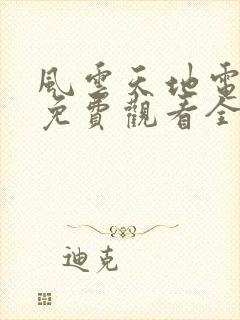 風雲天地電
免費觀看全
迪克